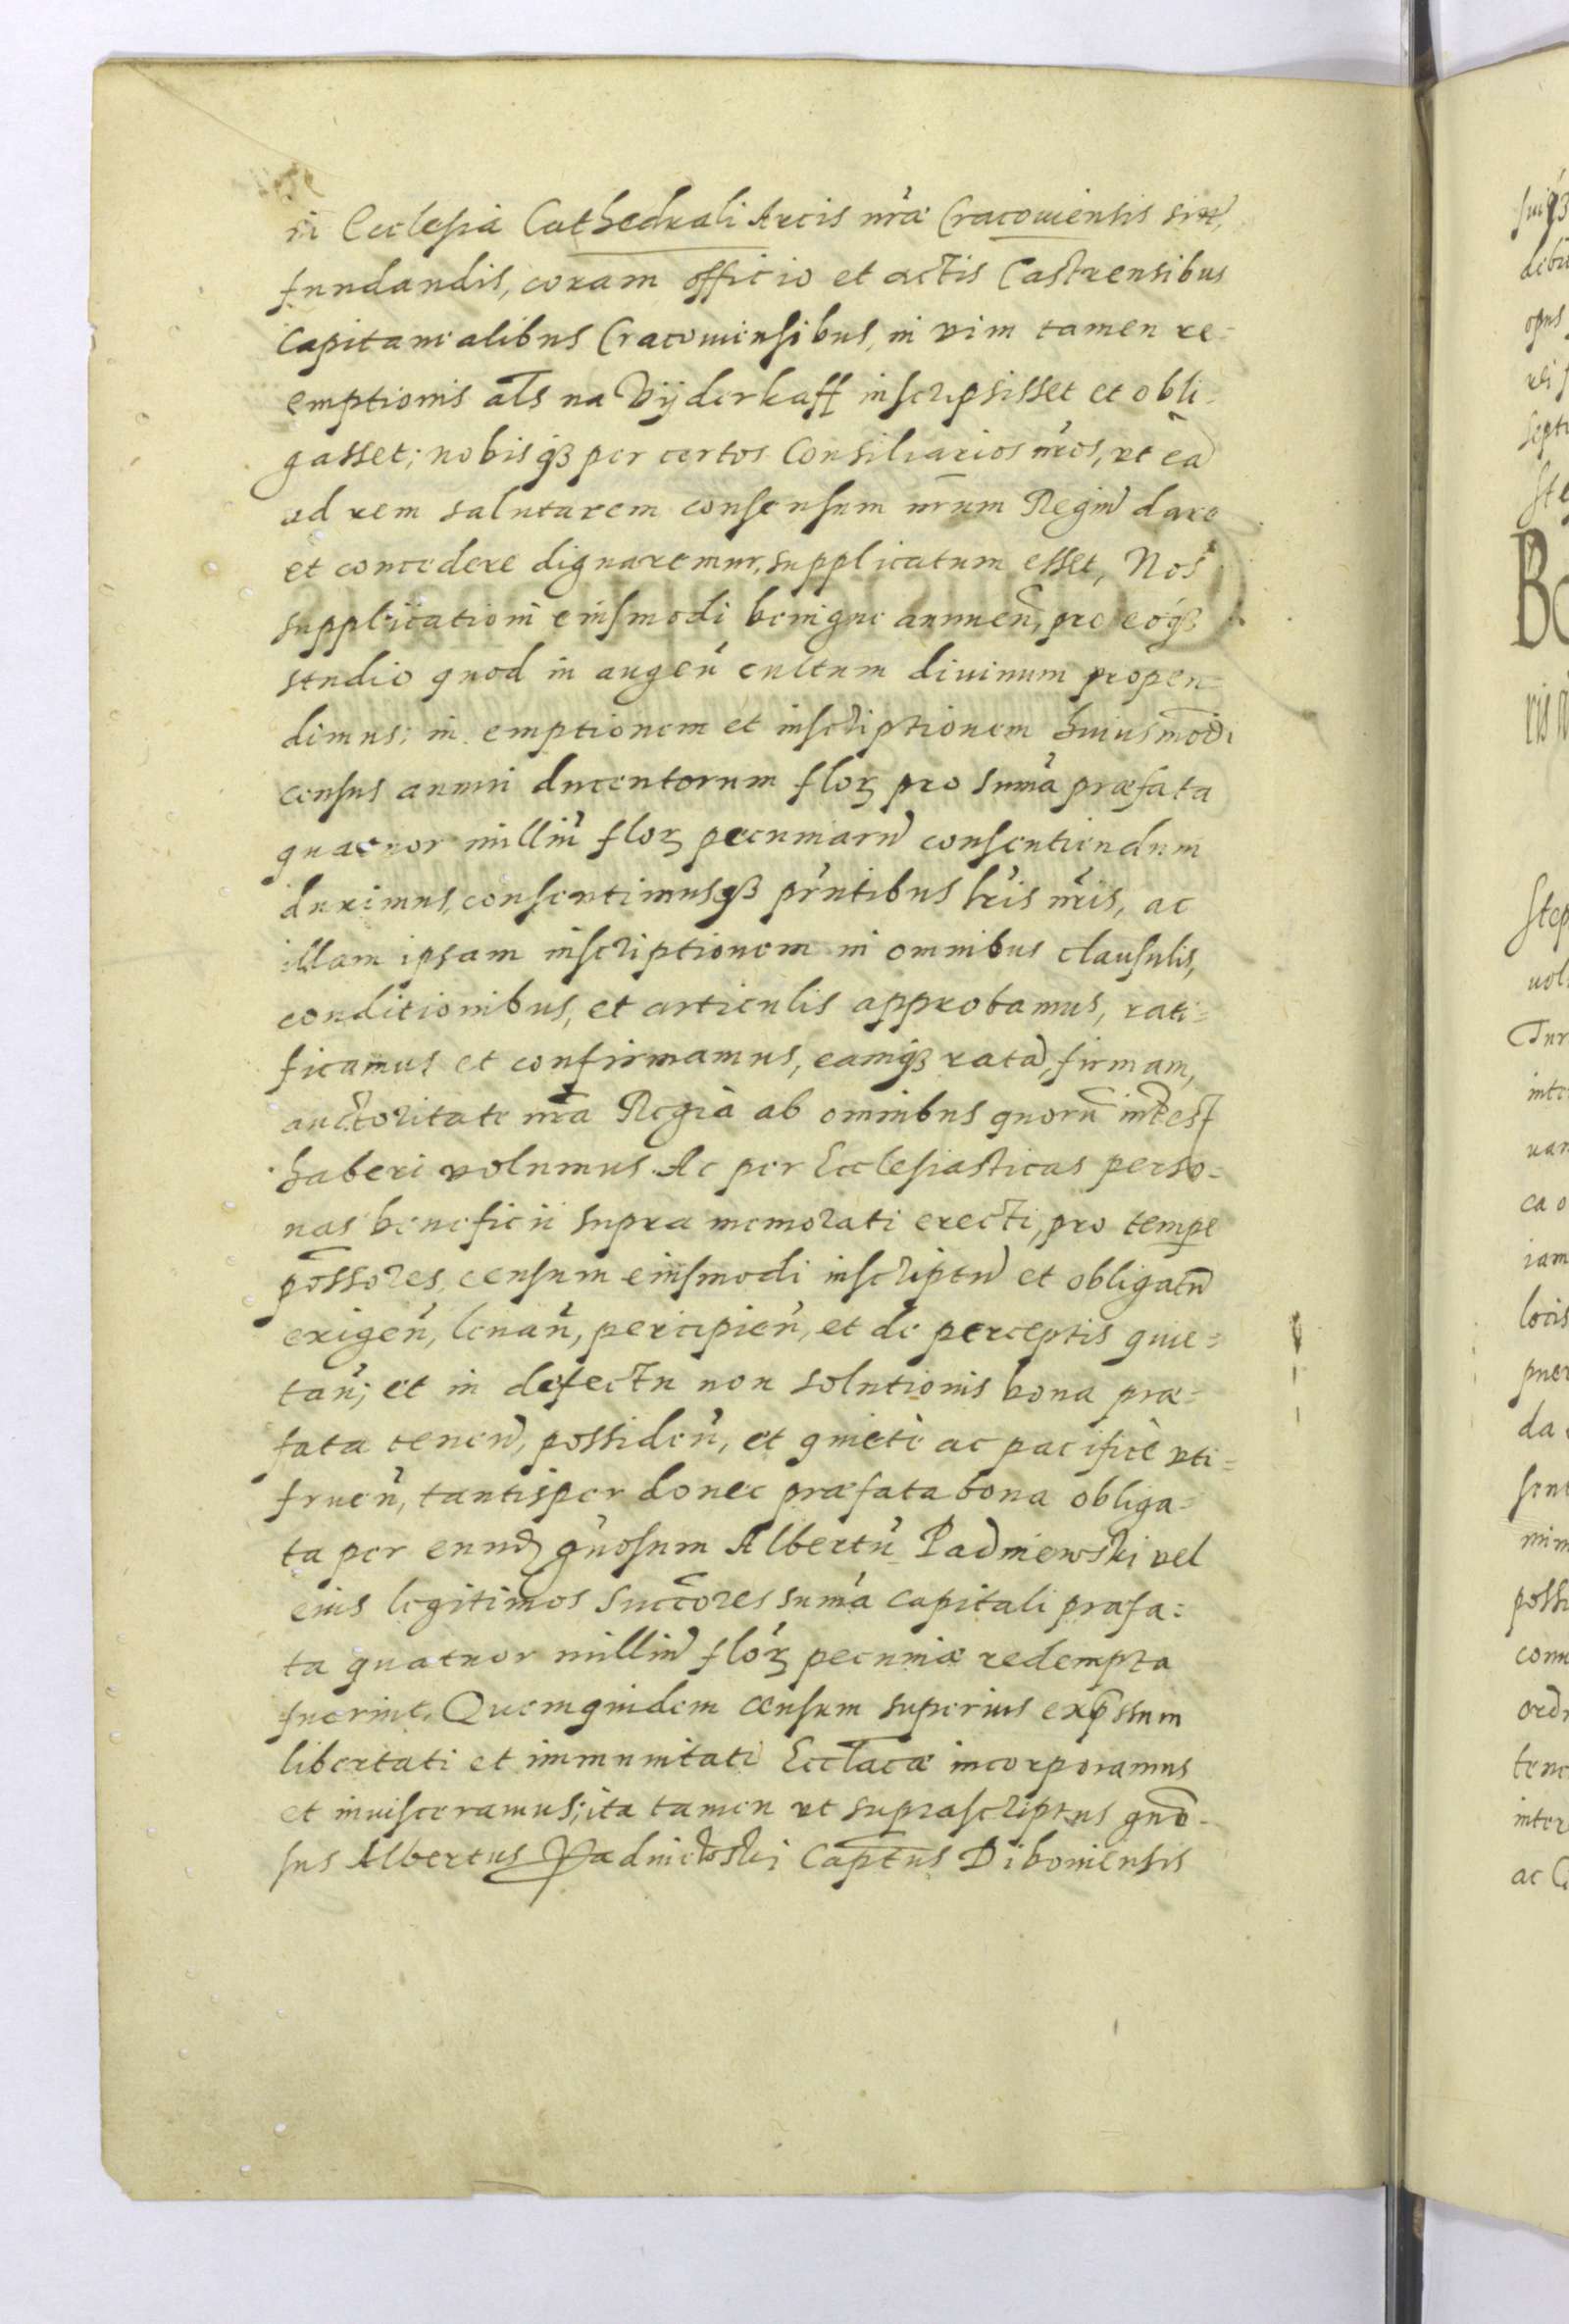 in Ecclesia Cathedrali Arcis nr̃ae Cracouiensis sitũ,
fundandis, coram officio et actis Castrensibus
Capitanealibus Cracouiensibus, in vim tamen re=
emptionis als̃ na Vijderkaff inscripsisset et obli=
gasset; nobisq₃ per certos Consiliarios nr̃os, vt eã
ad rem salutarem consensum nr̃um Regiũ dare
et concedere dignaremur, supplicatum esset, Nos
supplicationi eiusmodi benigne annueñ, pro eoq₃
studio quod in augeñ cultum diuinum propen=
dimus; in emptionem et inscriptionem huiusmodi
census annui ducentorum floꝝ pro sum̃a præfata
quatuor milliũ floꝝ pecuniarũ consentiendum
duximus, consentimusq₃ pr̃ntibus lr̃is nr̃is, ac
illam ipsam inscriptionem in omnibus clausulis,
conditionibus, et articulis approbamus, rati=
ficamus et confirmamus, eamq₃ ratã, firmam,
auctoritate nr̃a Regia ab omnibus quorũ intẽst
haberi volumus. Ac per Ecclesiasticas perso=
nas beneficii supra memorati erecti, pro tempe
possores, censum eiusmodi inscriptũ et obligatũ
exigeñ, leuañ, percipieñ, et de perceptis quie=
tañ; et in defectu non solutionis bona præ=
fata teneñ, possideñ, et quietè ac pacificè vti=
frueñ, tantisper donec præfata bona obliga=
ta per eundꝫ gñosum Albertũ Padniewski vel
eius legitimos succ̃ores sum̃a capitali præfa=
ta quatuor milliũ floꝝ pecuniæ redempta
fuerint. Quemquidem censum superius exp̃ssum
libertati et immunitati Eccl̃acæ incorporamus
et inuisceramus; ita tamen vt suprascriptus gño=
sus Albertus Padniewski Capt̃us Diboniensis